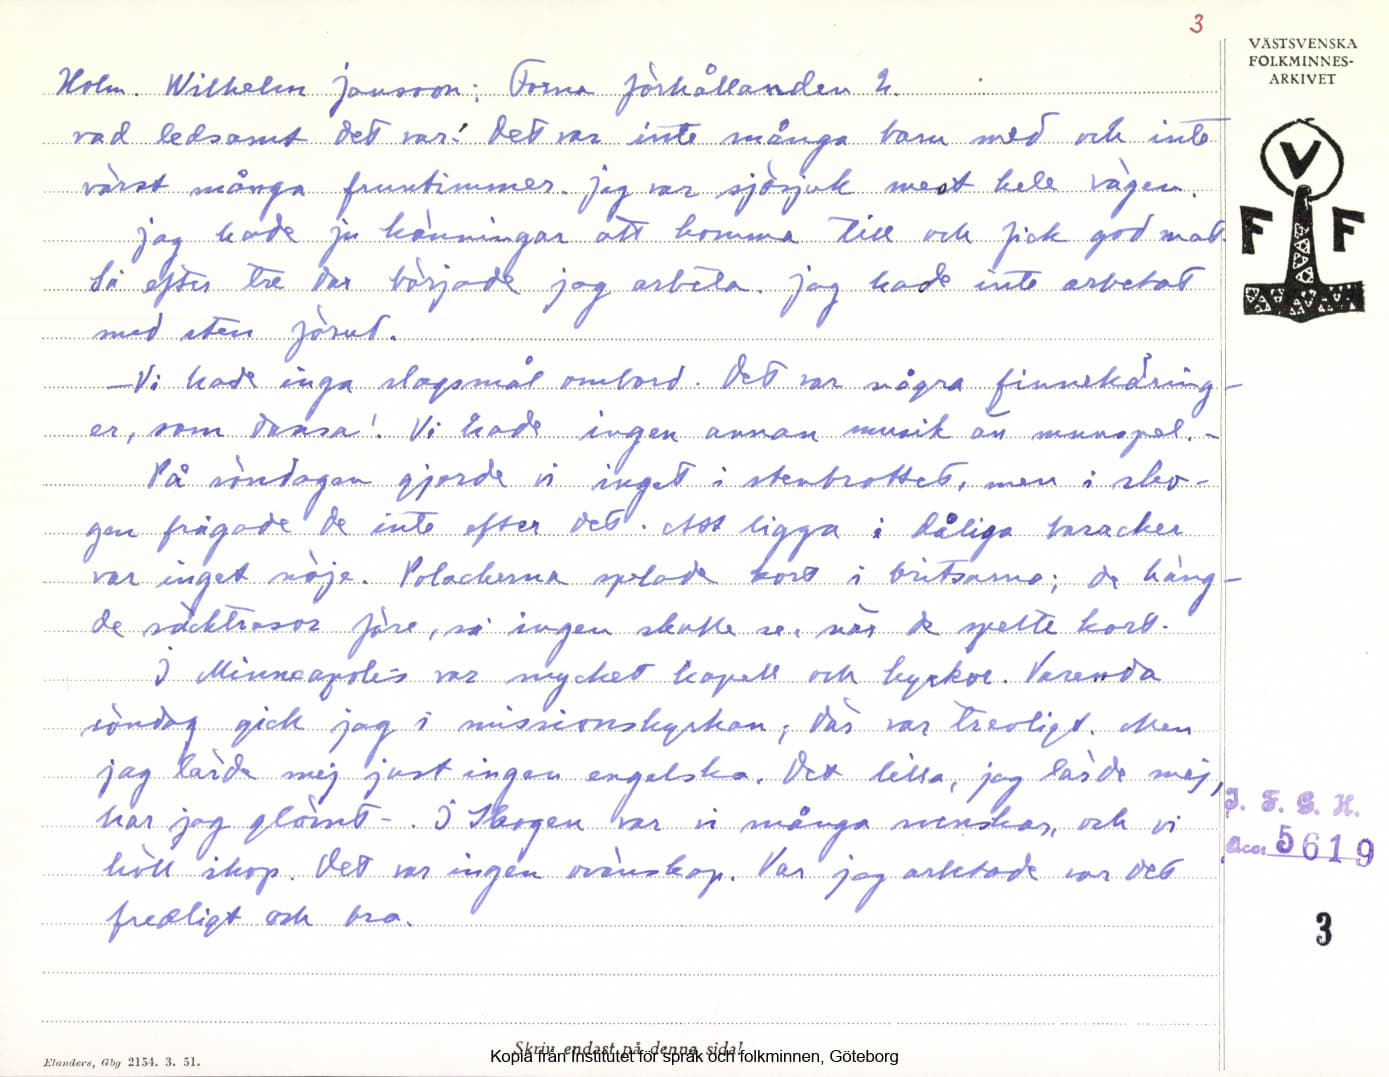 3
VÄSTSVENSKA
FOLKMINNES-
ARKIVET
V
F F
Holm. Wilhelm Jansson: Forna förhållanden 2.
vad ledsamt det var! Det var inte många barn med och inte
värst många fruntimmer. Jag var sjösjuk mest hele vägen.
Jag hade ju känningar att komma till och fick god mat.
Så efter tre dar började jag arbeta. Jag hade inte arbetat
med sten förut.
—Vi hade inga slagsmål ombord. Det var några finnekäring-
er, som dansa! Vi hade ingen annan musik än munspel. –
På söndagen gjorde vi inget i stenbrottet, men i sko-
gen frågade de inte efter det. Att ligga i dåliga baracker
var inget nöje. Polackerna spelade kort i britsarna; de häng-
de säcktrasor före, så ingen skulle se, när de spelte kort.
I Minneapolis var mycket kapell och kyrkor. Varenda
söndag gick jag i missionskyrkan; där var trevligt. Men
jag lärde mej just ingen engelska. Det lilla, jag lärde mej,
har jag glömt –. I Skogen var vi många svenskar, och vi
höll ihop. Det var ingen ovänskap. Var jag arbetade var det
fredligt och bra.
I. F. G. H.
Acc: 5619
3
Elanders, Gbg 2154. 3. 51.
Skriv endast på denna sida!
Kopia från Institutet för språk och folkminnen, Göteborg